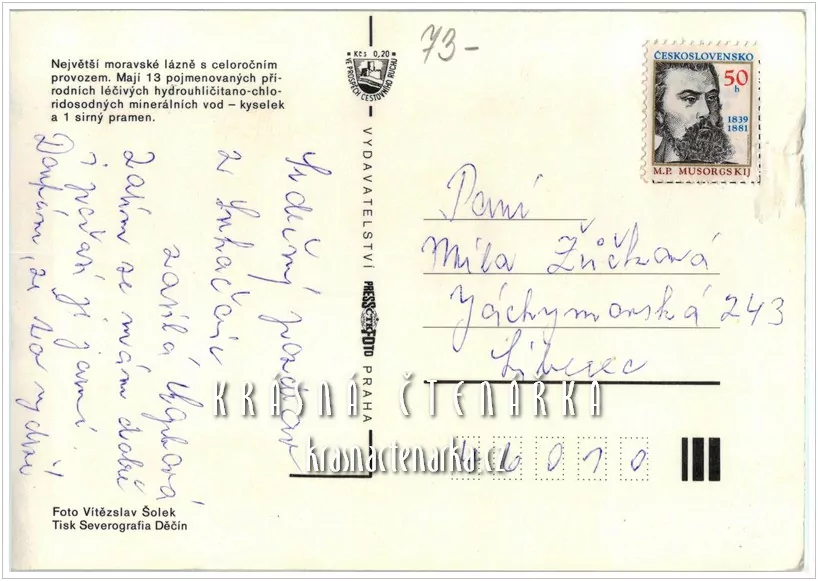 Největší moravské lázně s celoročním
provozem. Mají 13 pojmenovaných pří-
rodních léčivých hydrouhličitano-chlo-
ridosodných minerálních vod – kyselek
a 1 sirný pramen.
Srdečný pozdrav
z Luhačovic
zasílá
Zatím se mám dobře
i počasí je jarní.
Doufám, že to vydrží
Foto Vítězslav Šolek
Tisk Severografia Děčín
Kčs 0,20
VE PROSPĚCH CESTOVNÍHO RUCHU
VYDAVATELSTVÍ PRESSFOTO PRAHA
ČTK
73-
ČESKOSLOVENSKO
50
h
1839
1881
M.P. MUSORGSKIJ
Paní
Míla Žůčková
Jáchymovská 243
Liberec
46010
KRÁSNÁ ČTENÁŘKA
krasnactenarka.cz